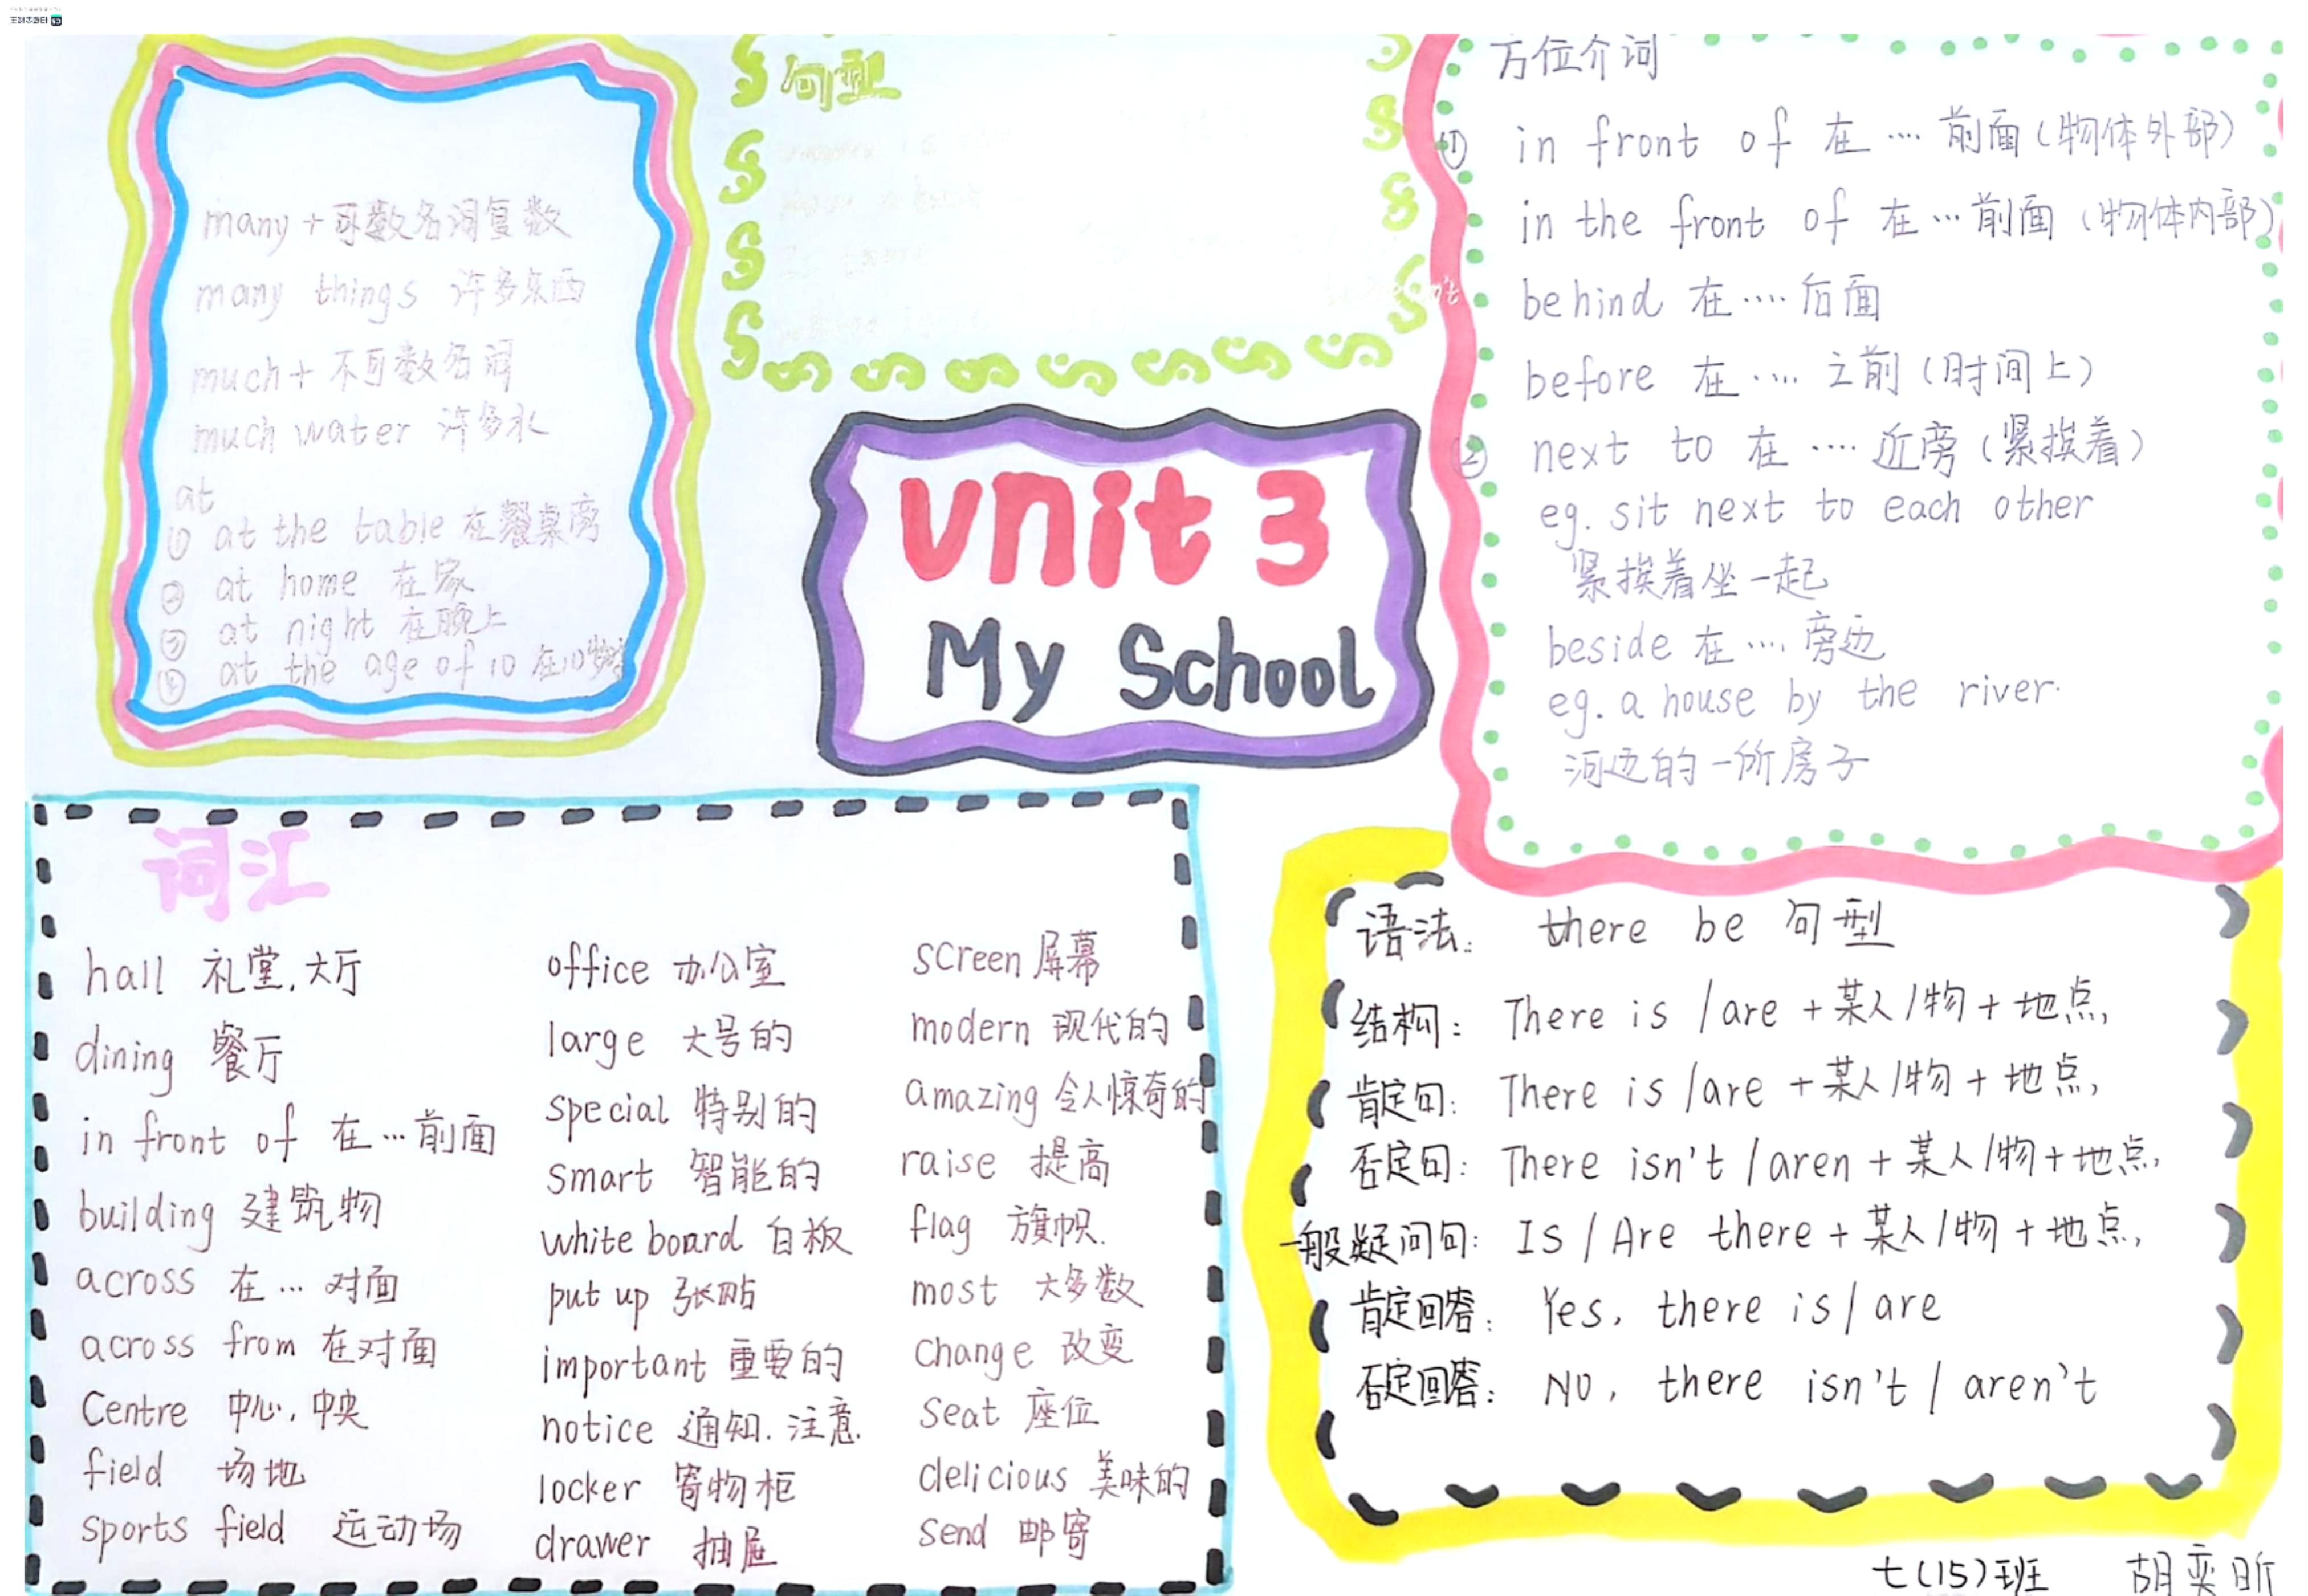 many + 可数名词复数
many things 许多东西
much + 不可数名词
much water 许多水
at
① at the table 在餐桌旁
② at home 在家
③ at night 在晚上
④ at the age of 10 在10岁时
句型
Unit 3
My School
方位介词
① in front of 在 .... 前面 (物体外部)
in the front of 在 ... 前面 (物体内部)
behind 在 .... 后面
before 在 .... 之前 (时间上)
② next to 在 .... 近旁 (紧挨着)
eg. sit next to each other
紧挨着坐一起
beside 在 .... 旁边
eg. a house by the river.
河边的一所房子
词汇
hall 礼堂,大厅
dining 餐厅
in front of 在 ... 前面
building 建筑物
across 在 ... 对面
across from 在对面
Centre 中心,中央
field 场地
sports field 运动场
office 办公室
large 大号的
special 特别的
smart 智能的
white board 白板
put up 张贴
important 重要的
notice 通知.注意
locker 寄物柜
drawer 抽屉
screen 屏幕
modern 现代的
amazing 令人惊奇的
raise 提高
flag 旗帜.
most 大多数
change 改变
seat 座位
delicious 美味的
send 邮寄
语法: there be 句型
结构: There is / are + 某人/物 + 地点,
肯定句: There is / are + 某人/物 + 地点,
否定句: There isn't / aren + 某人/物 + 地点,
一般疑问句: Is / Are there + 某人/物 + 地点,
肯定回答: Yes, there is / are
否定回答: No, there isn't / aren't
七(15)班 胡奕昕